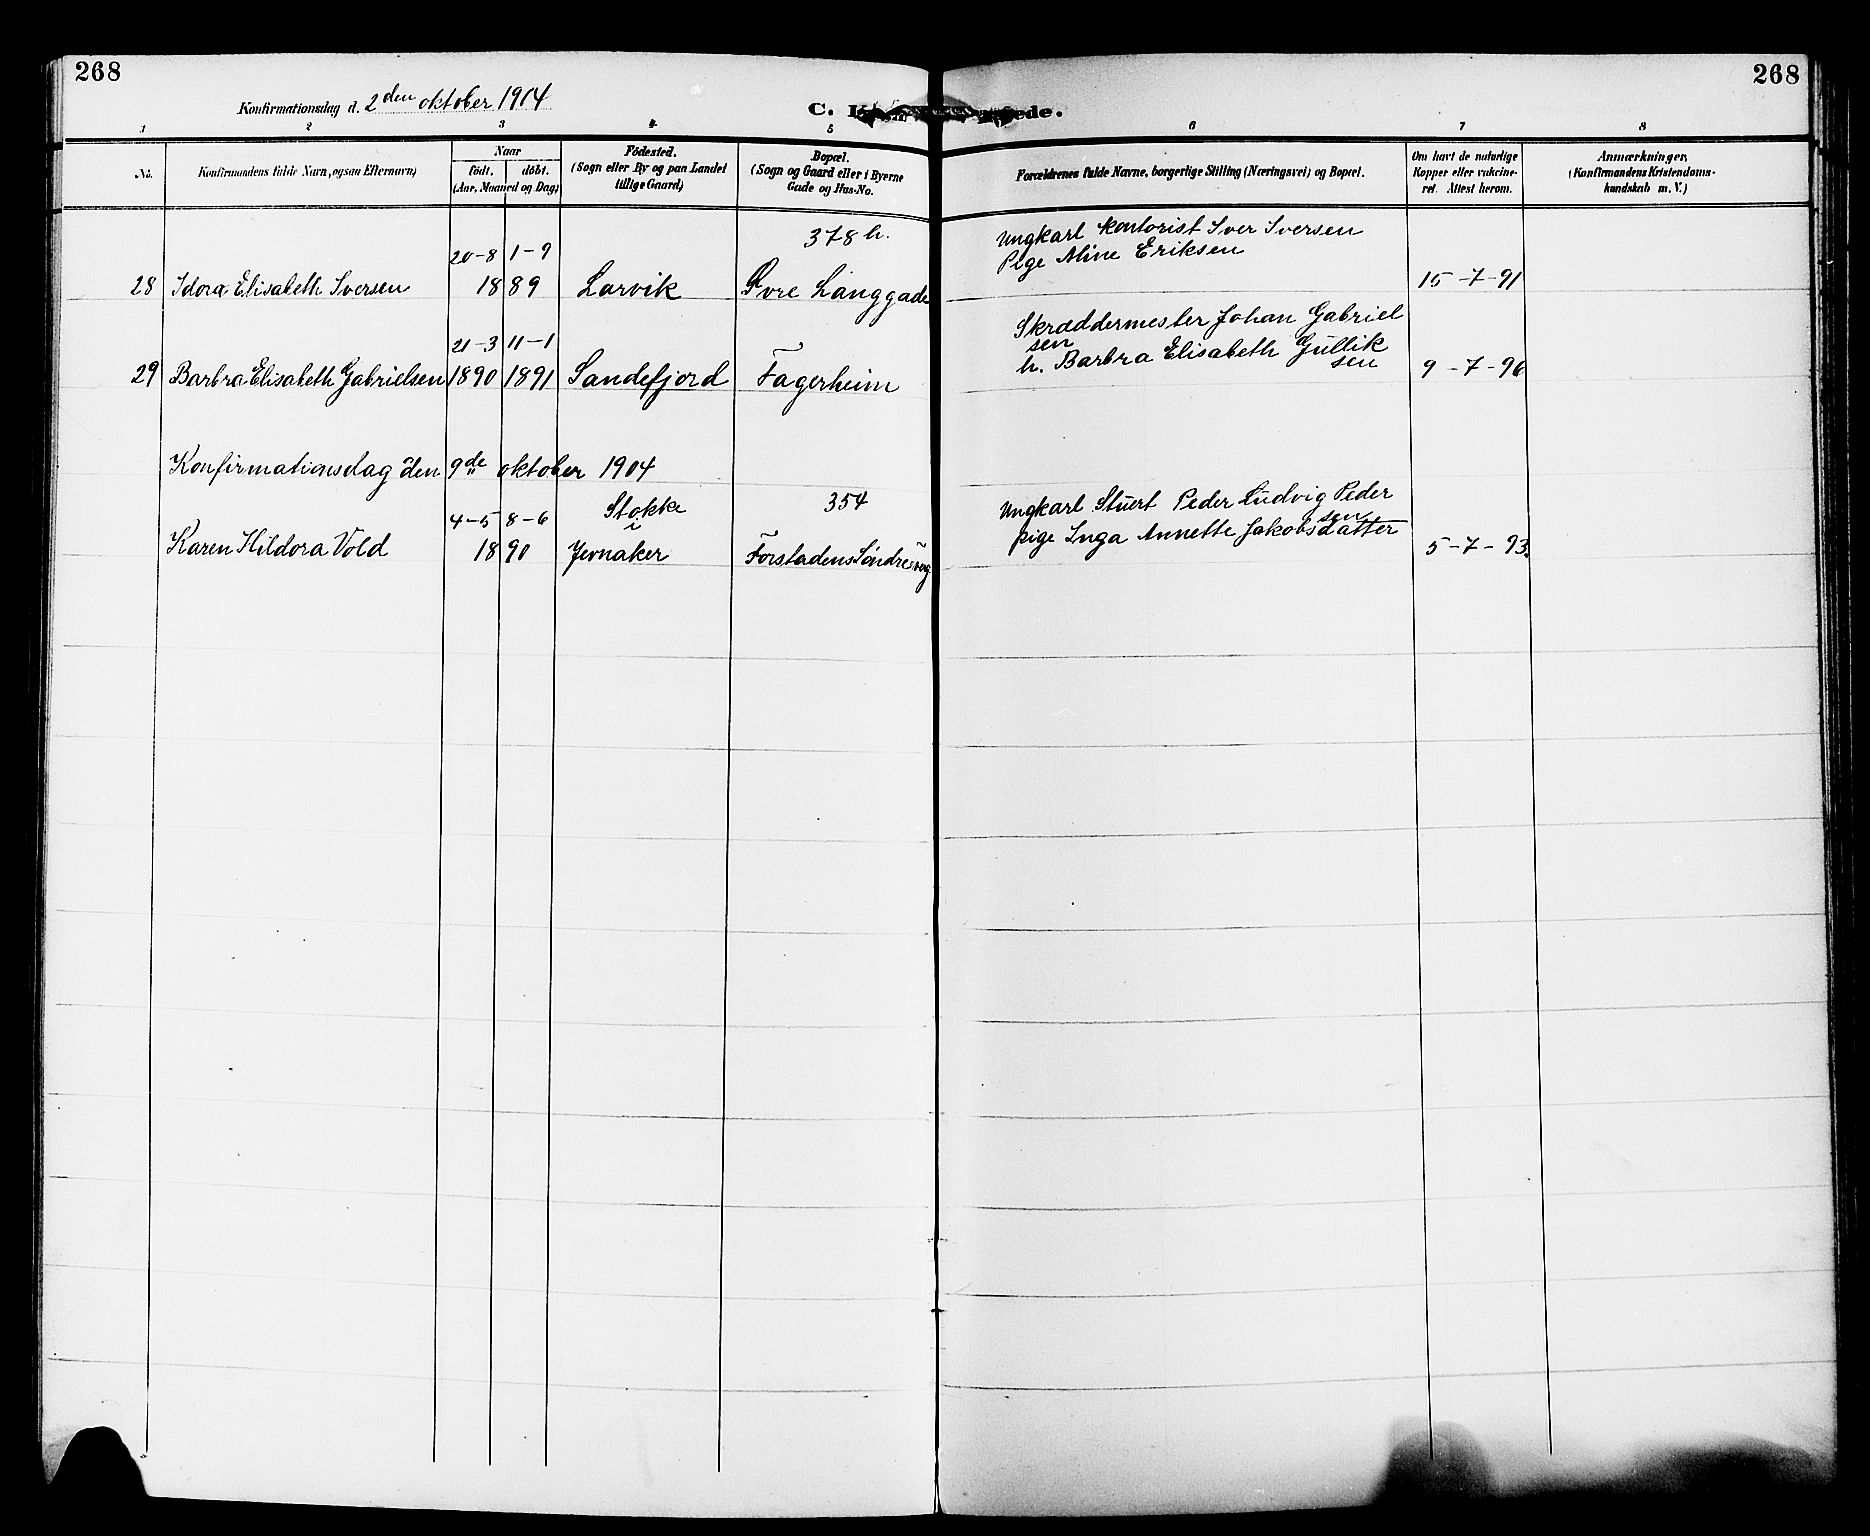 268
268
Konfirmationsdag d. 2den oktober 1904
C.
ede.
1 2 3 4 5 6 7 8
No.
Konfirmandens fulde Navn, ogsaa Efternavn)
Naar
födt. döbt.
(Aar, Maaned og Dag)
Födested.
(Sogn eller By og paa Landet
tillige Gaard)
Bopæl.
(Sogn og Gaard eller i Byerne
Gade og Hus-No.
Forældrenes fulde Navne, borgerlige Stilling (Næringsvei) og Bopæl.
Om havt de naturlige
Kopper eller vakcine-
ret. Attest herom.
Anmærkninger,
(Konfirmandens Kristendoms-
kundskab m. V.)
20-8 1-9 378 h. Ungkarl kontorist Iver Iversen
Pige Aline Eriksen
28 Idora Elisabeth Iversen 1889 Larvik Øvre Langgade 15-7-91
21-3 11-1 Skræddermester Johan Gabriel
sen
h. Barbra Elisabeth Gullik
sen
29 Barbra Elisabeth Gabrielsen 1890 1891 Sandefjord Fagerheim 9-7-96
Konfirmationsdag den 9de oktober 1904
4-5 8-6 Stokke 354 Ungkarl Stuert Peder Ludvig Peder
sen
i pige Inga Annette Jakobsdatter
Karen Hildora Vold 1890 Jevnaker Forstadens Søndre 5-7-93.